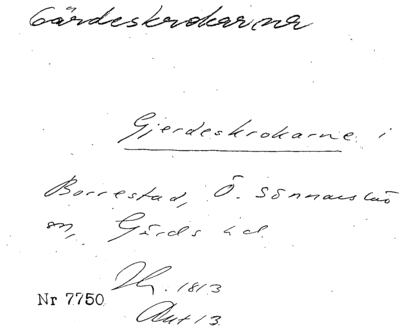 Gärdeskrokarna
Gjerdeskrokarne i
Borrestad, Ö. Sönnarslöv
sn, Gärds hd
1813
Nr 7750
Akt 13